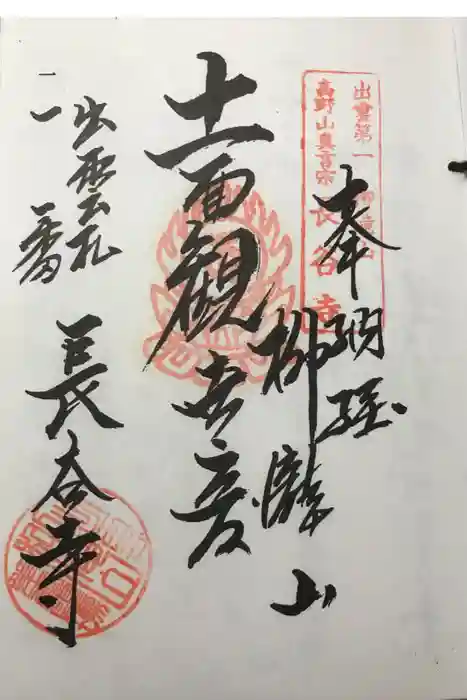 出雲第一 柳瀧山
高野山真言宗 長谷寺
奉納経
柳瀧山
十一面観世音
出雲札
一番
長谷寺